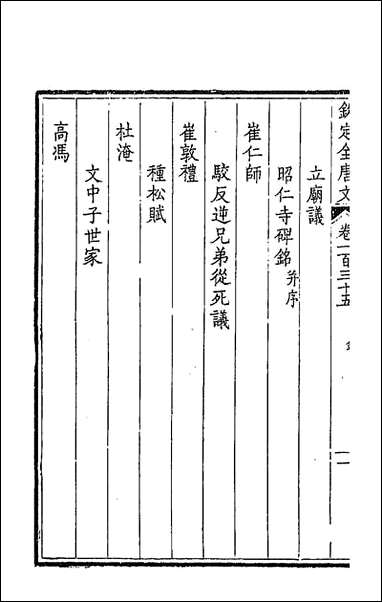 欽定全唐文
卷一百三十五
立廟議
昭仁寺碑銘并序
崔仁師
駮反逆兄弟從死議
崔敦禮
種松賦
杜淹
文中子世家
高馮